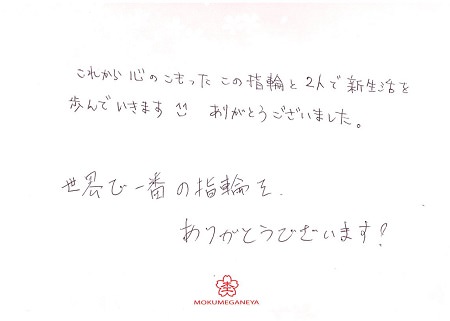 これから心のこもったこの指輪と2人で新生活を
歩んでいきます ありがとうございました。
世界で一番の指輪を、
ありがとうございます!
杢
MOKUMEGANEYA